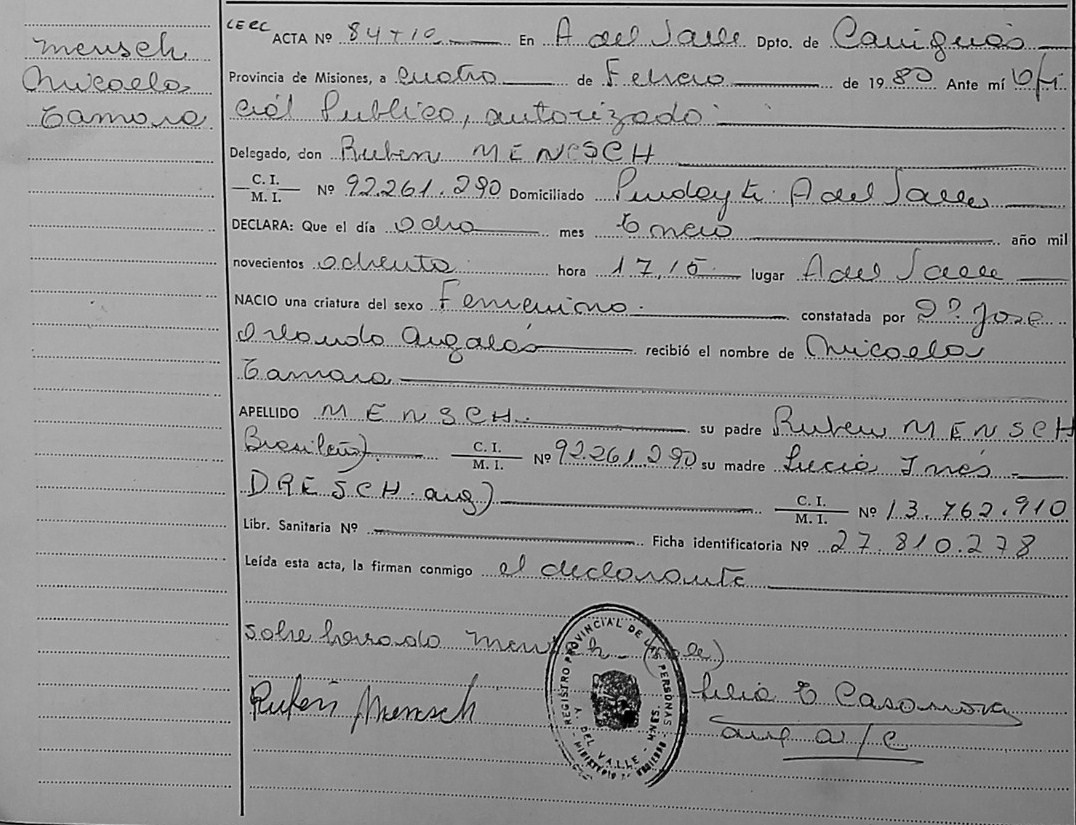 Mensch
Micaela
Tamara
ACTA Nº 84 T 1º En A del Valle Dpto. de Cainguás
Provincia de Misiones, a cuatro de Febrero de 1980 Ante mí Ofi
cial Publico, autorizado
Delegado, don Ruben MENSCH
C. I.
M. I. Nº 92.261.290 Domiciliado Pindayti A del Valle
DECLARA: Que el día ocho mes Enero año mil
novecientos ochenta hora 17,15 lugar A del Valle
NACIO una criatura del sexo Femenino. constatada por Jose
Orlando recibió el nombre de Micaela
Tamara
APELLIDO MENSCH. su padre Ruben MENSCH
Brasileño) C. I.
M. I. Nº 92261.290 su madre Lucia Inés
DRESCH. arg) C. I.
M. I. Nº 13.762.910
Libr. Sanitaria Nº Ficha identificatoria Nº 27.810.278
Leída esta acta, la firman conmigo el declarante
sobre borrado Mensch (vale)
Ruben Mensch
REGISTRO PROVINCIAL DE LAS PERSONAS
A. DEL VALLE - MNES.
MINISTERIO DE GOBIERNO
E Casanova
a/c